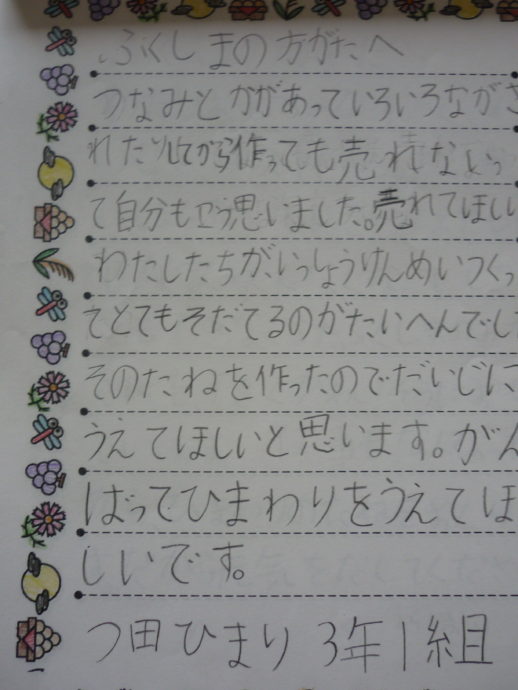 ふくしまの方がたへ
つなみとかがあっていろいろながさ
れたりしてから作っても売れないっ
て自分もそう思いました。売れてほしい
わたしたちがいっしょうけんめいつくっ
てとてもそだてるのがたいへんでし
そのたねを作ったのでだいじに
うえてほしいと思います。がん
ばってひまわりをうえてほ
しいです。
つ田ひまり 3年1組